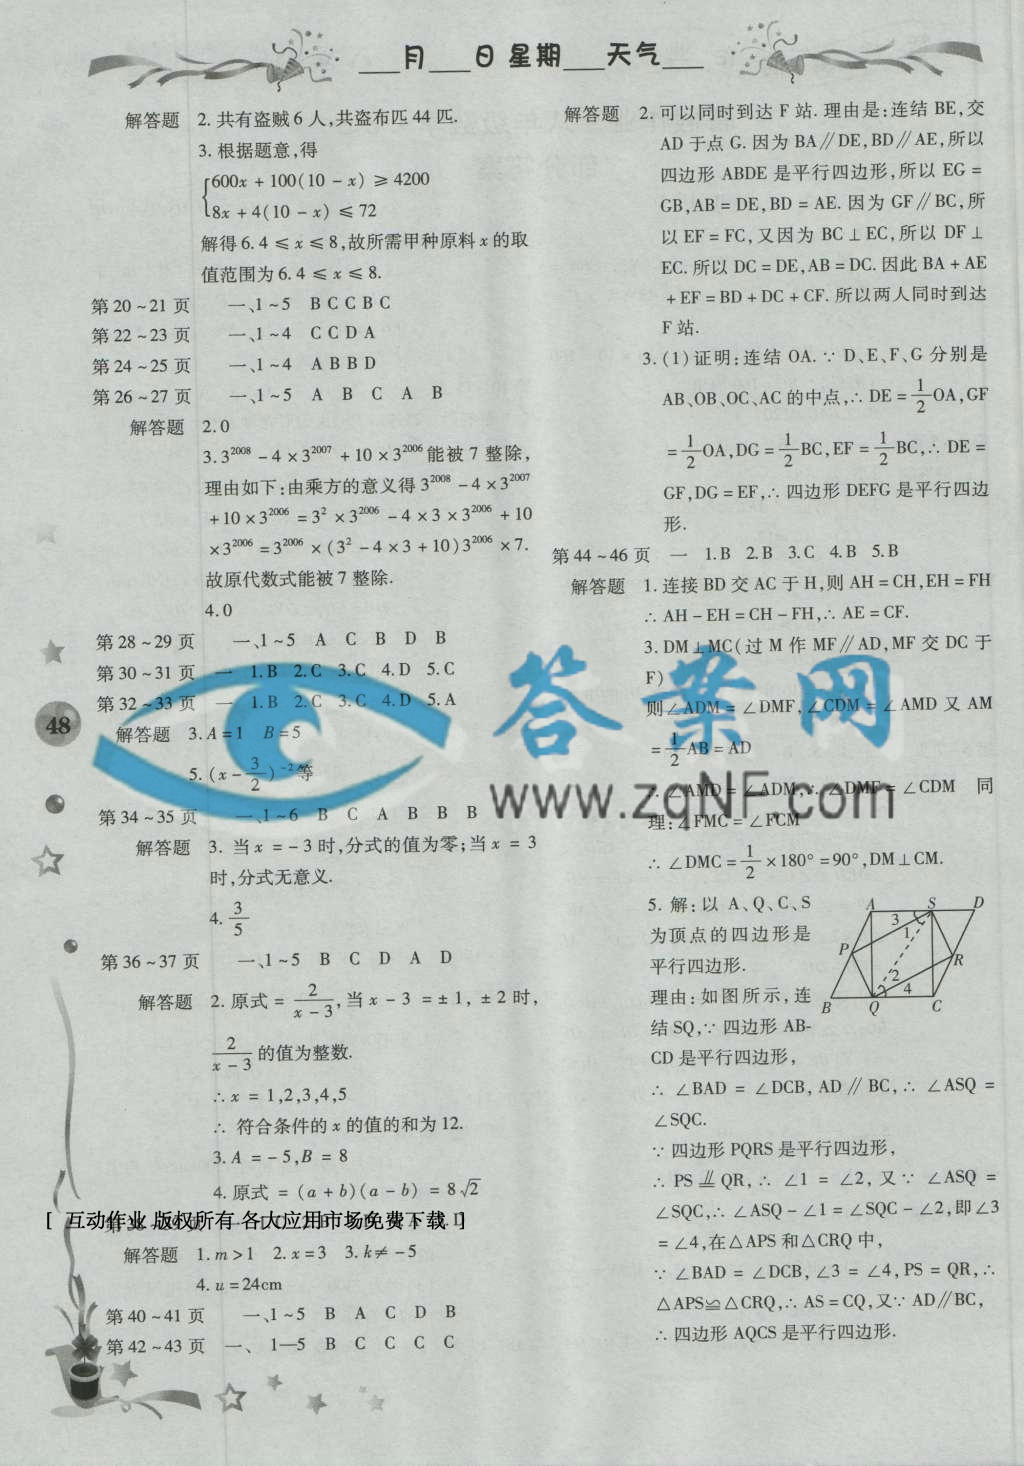 ___月___日 星期___天气___
解答题 2. 共有盗贼 6 人,共盗布匹 44 匹.
3. 根据题意,得
{600x + 100(10 - x) ≥ 4200
8x + 4(10 - x) ≤ 72
解得 6.4 ≤ x ≤ 8,故所需甲种原料 x 的取
值范围为 6.4 ≤ x ≤ 8.
第 20 ~ 21 页 一、1 ~ 5 B C C B C
第 22 ~ 23 页 一、1 ~ 4 C C D A
第 24 ~ 25 页 一、1 ~ 4 A B B D
第 26 ~ 27 页 一、1 ~ 5 A B C A B
解答题 2. 0
3. 3²⁰⁰⁸ - 4 × 3²⁰⁰⁷ + 10 × 3²⁰⁰⁶ 能被 7 整除,
理由如下:由乘方的意义得 3²⁰⁰⁸ - 4 × 3²⁰⁰⁷
+ 10 × 3²⁰⁰⁶ = 3² × 3²⁰⁰⁶ - 4 × 3 × 3²⁰⁰⁶ + 10
× 3²⁰⁰⁶ = 3²⁰⁰⁶ × (3² - 4 × 3 + 10)3²⁰⁰⁶ × 7.
故原代数式能被 7 整除.
4. 0
第 28 ~ 29 页 一、1 ~ 5 A C B D B
第 30 ~ 31 页 一 1. B 2. C 3. C 4. D 5. C
第 32 ~ 33 页 一 1. B 2. C 3. C 4. D 5. A
48
解答题 3. A = 1 B = 5
5. (x - 3/2)⁻² 等
第 34 ~ 35 页 一、1 ~ 6 B C A B B B
解答题 3. 当 x = - 3 时,分式的值为零;当 x = 3
时,分式无意义.
4. 3/5
第 36 ~ 37 页 一、1 ~ 5 B C D A D
解答题 2. 原式 = 2/(x - 3),当 x - 3 = ± 1, ± 2 时,
2/(x - 3) 的值为整数.
∴ x = 1,2,3,4,5
∴ 符合条件的 x 的值的和为 12.
3. A = - 5,B = 8
4. 原式 = (a + b)(a - b) = 8√2
[ 互动作业 版权所有 各大应用市场免费下载 ]
解答题 1. m > 1 2. x = 3 3. k ≠ - 5
4. u = 24cm
第 40 ~ 41 页 一、1 ~ 5 B A C D B
第 42 ~ 43 页 一、 1—5 B C C C C
解答题 2. 可以同时到达 F 站. 理由是:连结 BE,交
AD 于点 G. 因为 BA∥DE,BD∥AE,所以
四边形 ABDE 是平行四边形,所以 EG =
GB,AB = DE,BD = AE. 因为 GF∥BC,所
以 EF = FC,又因为 BC⊥EC,所以 DF⊥
EC. 所以 DC = DE,AB = DC. 因此 BA + AE
+ EF = BD + DC + CF. 所以两人同时到达
F 站.
3. (1)证明:连结 OA. ∵ D、E、F、G 分别是
AB、OB、OC、AC 的中点,∴ DE = 1/2 OA,GF
= 1/2 OA,DG = 1/2 BC,EF = 1/2 BC,∴ DE =
GF,DG = EF,∴ 四边形 DEFG 是平行四边
形.
第 44 ~ 46 页 一 1. B 2. B 3. C 4. B 5. B
解答题 1. 连接 BD 交 AC 于 H,则 AH = CH,EH = FH
∴ AH - EH = CH - FH,∴ AE = CF.
3. DM⊥MC(过 M 作 MF∥AD,MF 交 DC 于
F)
则∠ADM = ∠DMF,∠CDM = ∠AMD 又 AM
= 1/2 AB = AD
∴ ∠AMD = ∠ADM,∴ ∠DMF = ∠CDM 同
理:∠FMC = ∠FCM
∴ ∠DMC = 1/2 × 180° = 90°,DM⊥CM.
5. 解:以 A、Q、C、S
为顶点的四边形是
平行四边形.
理由:如图所示,连
结 SQ,∵ 四边形 AB-
CD 是平行四边形,
A S D
3
1
P R
2
4
B Q C
∴ ∠BAD = ∠DCB, AD∥BC,∴ ∠ASQ =
∠SQC.
∵ 四边形 PQRS 是平行四边形,
∴ PS ∥= QR, ∴ ∠1 = ∠2, 又 ∵ ∠ASQ =
∠SQC,∴ ∠ASQ - ∠1 = ∠SQC - ∠2,即∠3
= ∠4,在△APS 和△CRQ 中,
∵ ∠BAD = ∠DCB,∠3 = ∠4,PS = QR,∴
△APS≌△CRQ,∴ AS = CQ,又∵ AD∥BC,
∴ 四边形 AQCS 是平行四边形.
答案网
www.zqNF.com